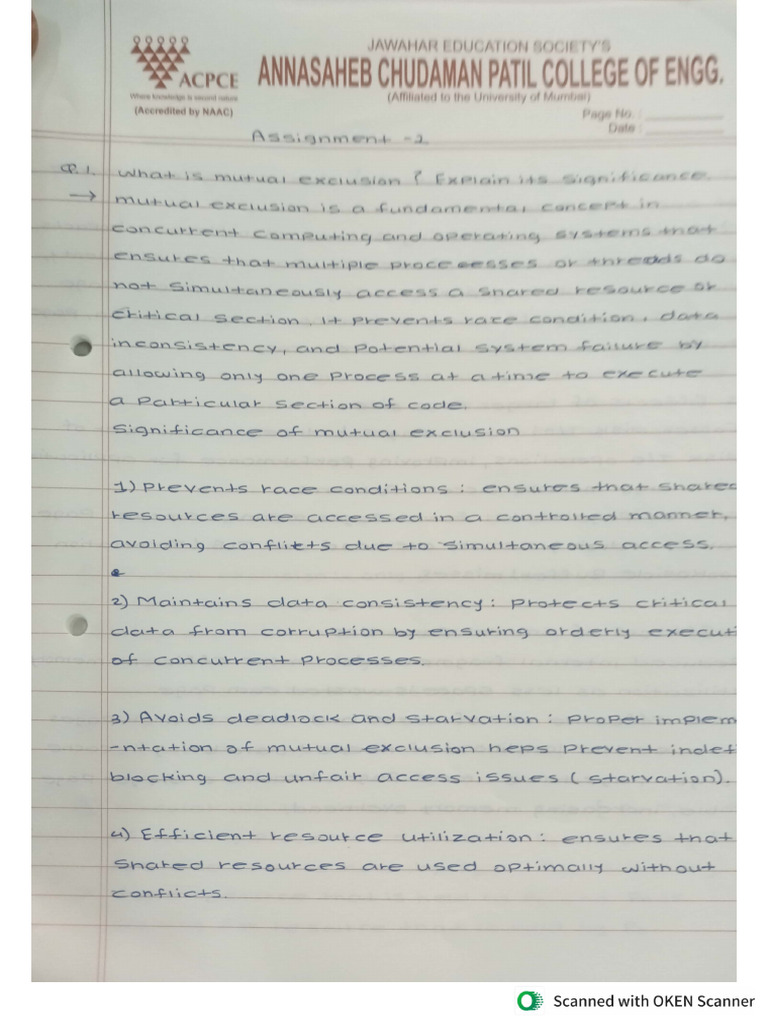 JAWAHAR EDUCATION SOCIETY'S
ANNASAHEB CHUDAMAN PATIL COLLEGE OF ENGG.
(Affiliated to the University of Mumbai)
ACPCE
Where knowledge is second nature
(Accredited by NAAC)
Page No. :
Date :
Assignment -2
Q.1. What is mutual exclusion? Explain its significance.
→ mutual exclusion is a fundamental concept in
concurrent computing and operating systems that
ensures that multiple processes or threads do
not simultaneously access a shared resource or
critical section, It prevents race condition, data
inconsistency, and potential system failure by
allowing only one process at a time to execute
a particular section of code.
significance of mutual exclusion
1) Prevents race conditions : ensures that shared
resources are accessed in a controlled manner,
avoiding conflicts due to simultaneous access.
2) Maintains data consistency : protects critical
data from corruption by ensuring orderly executi
of concurrent processes.
3) Avoids deadlock and starvation : proper implem
-ntation of mutual exclusion heps prevent indef
blocking and unfair access issues (starvation).
4) Efficient resource utilization : ensures that
shared resources are used optimally without
conflicts.
Scanned with OKEN Scanner